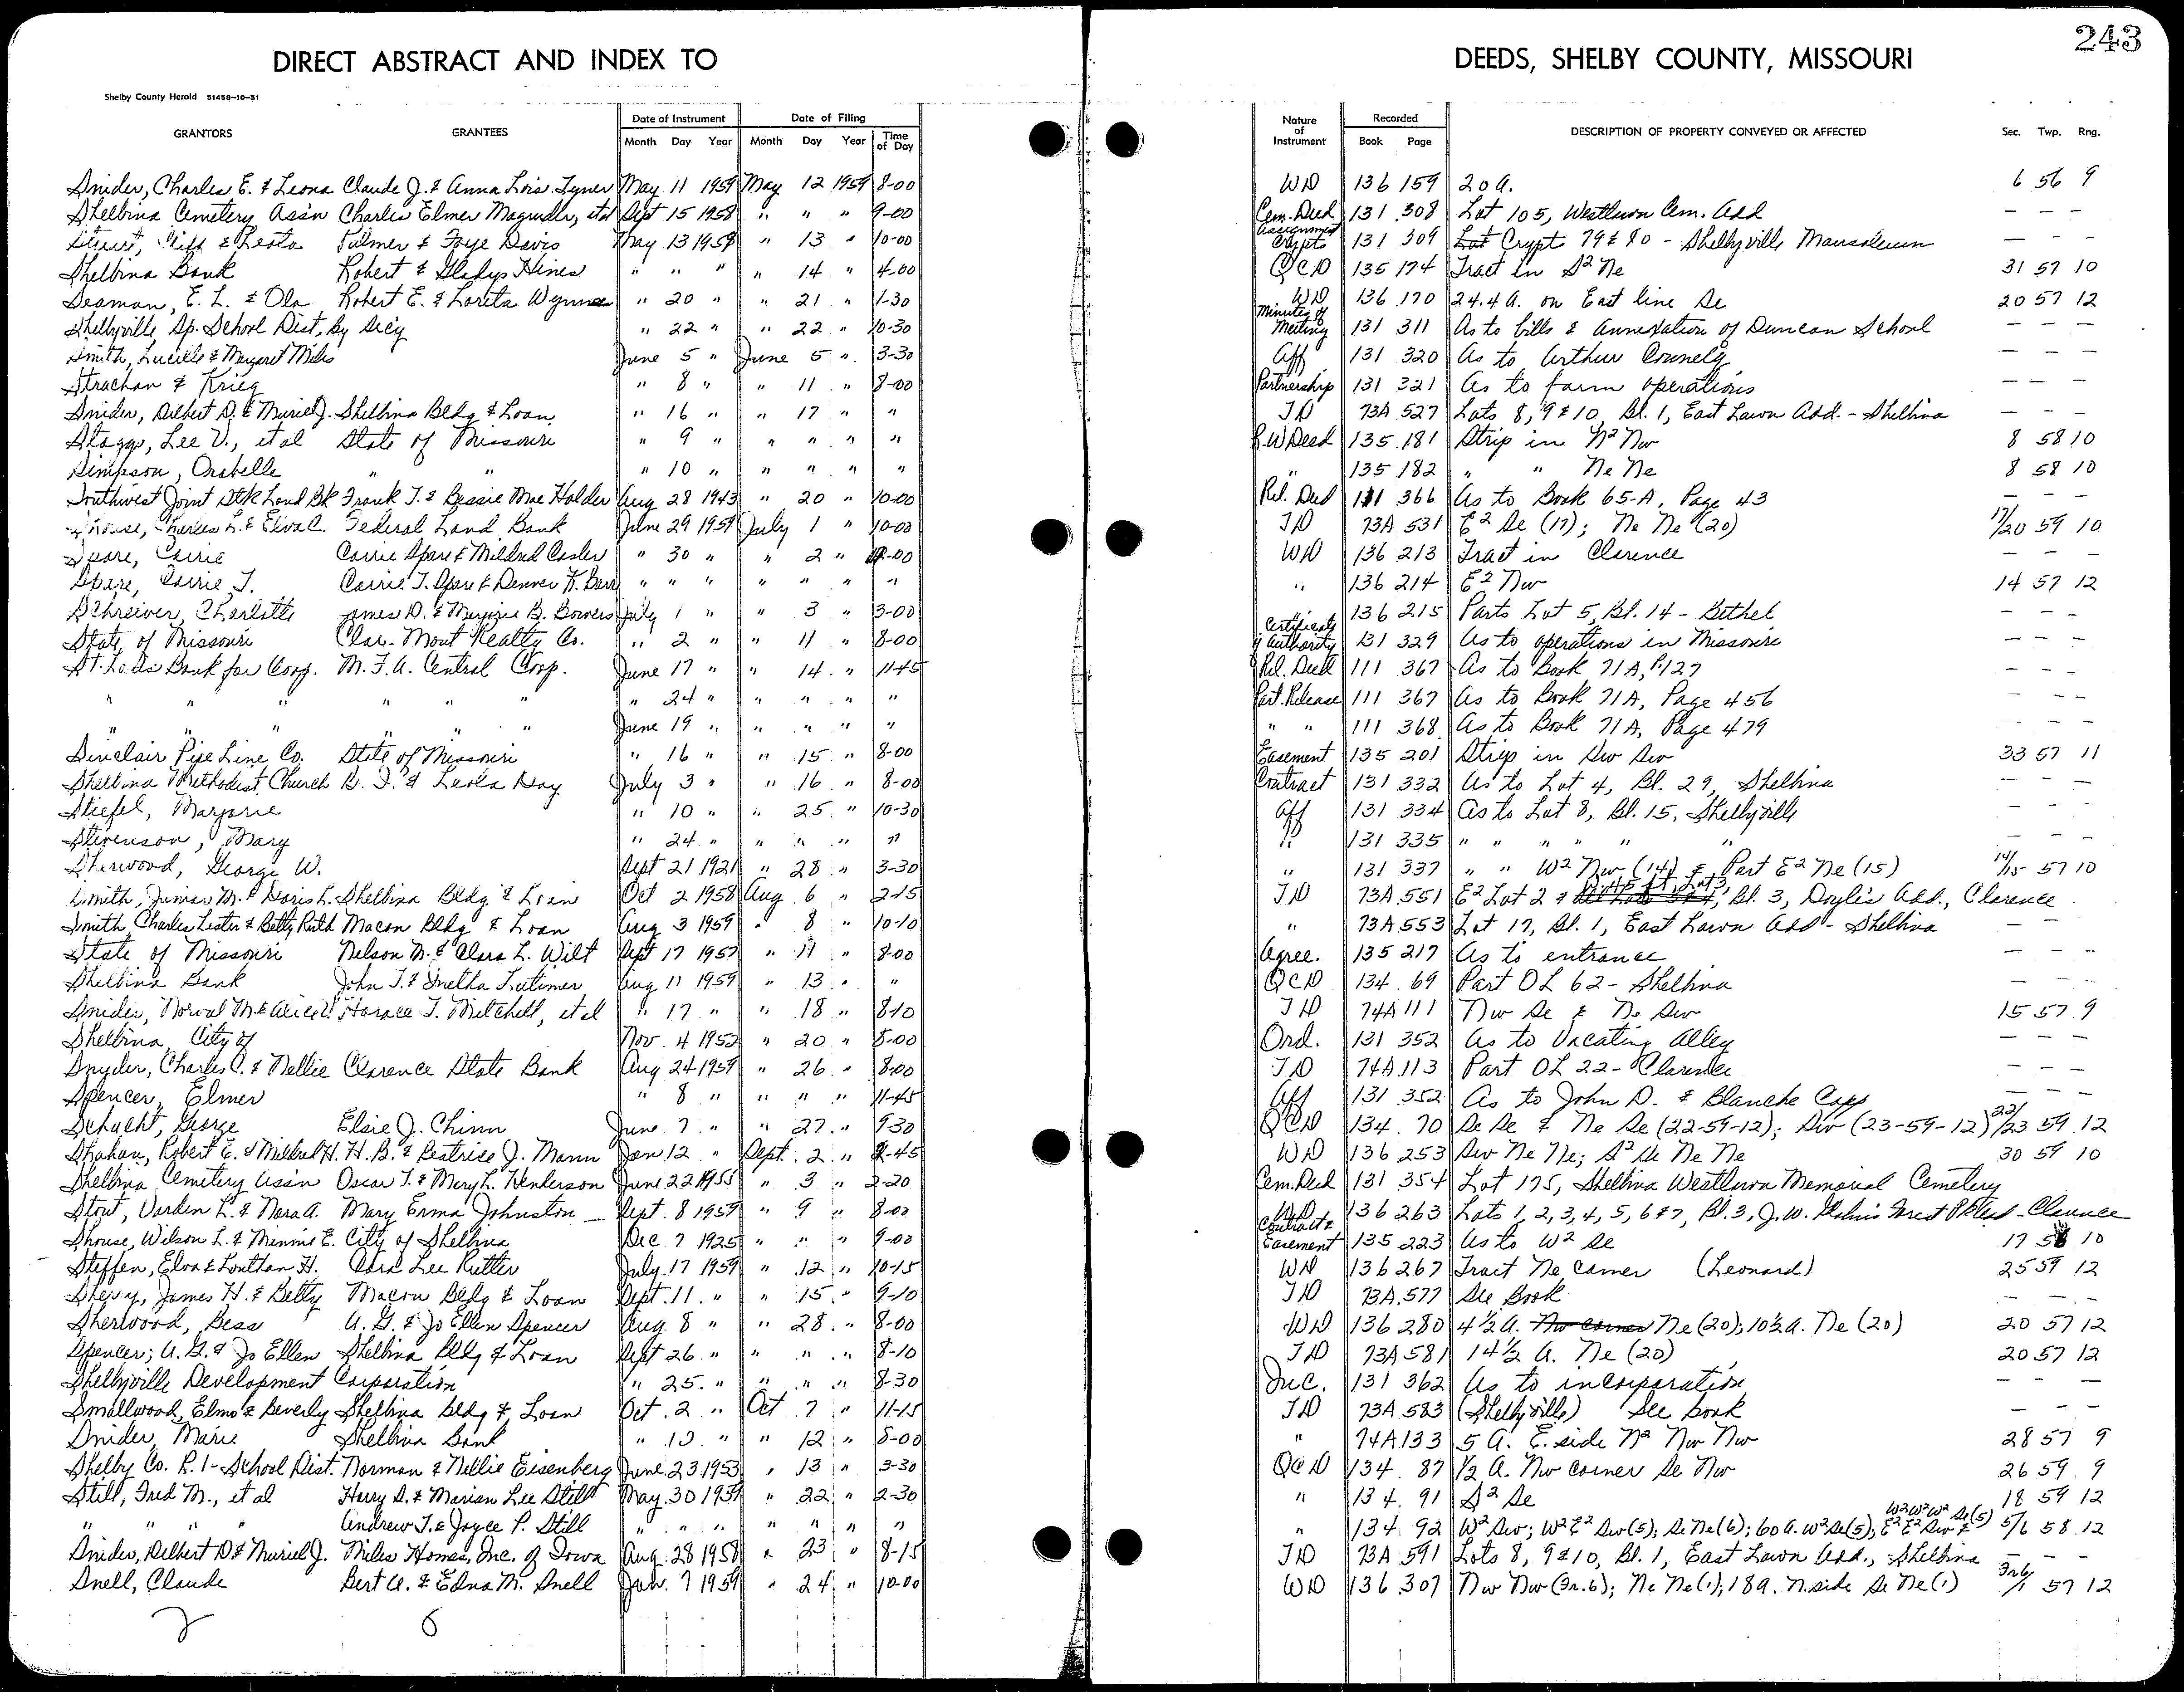 243
DIRECT ABSTRACT AND INDEX TO DEEDS, SHELBY COUNTY, MISSOURI
Shelby County Herald 51458-10-51
GRANTORS GRANTEES Date of Instrument Month Day Year Date of Filing Month Day Year Time of Day Nature of Instrument Recorded Book Page DESCRIPTION OF PROPERTY CONVEYED OR AFFECTED Sec. Twp. Rng.
Snider, Charles E. & Leona Claude J. & Anna Lois Tyner May 11 1959 May 12 1959 8-00 WD 136 159 20 A. 6 56 9
Shelbina Cemetery Ass'n Charles Elmer Magruder, etal Sept 15 1958 " " " 9-00 Cem. Deed 131 308 Lot 105, Westlawn Cem. Add — — —
& Leota Palmer & Faye Davis May 13 1959 " 13 " 10-00 Assignment Crypt 131 309 Crypt 79 & 80 - Shelbyville Mausoleum — — —
Shelbina Bank Robert & Gladys Hines " " " " 14 " 4-00 QCD 135 174 Tract in S² Ne 31 57 10
Seaman, E. L. & Ola Robert E. & Loreta Wynne " 20 " " 21 " 1-30 WD 136 170 24.4 A. on East line Se 20 57 12
Shelbyville Sp. School Dist, by Sec'y " 22 " " 22 " 10-30 Minutes of Meeting 131 311 As to bills & annexation of Duncan School — — —
Smith, Lucille & Margaret Miles June 5 " June 5 " 3-30 Aff 131 320 As to Arthur Connely — — —
Strachan & Krieg " 8 " " 11 " 8-00 Partnership 131 321 As to farm operations — — —
Snider, Delbert D. & Muriel J. Shelbina Bldg & Loan " 16 " " 17 " " TD 73A 527 Lots 8, 9 & 10, Bl. 1, East Lawn Add. - Shelbina — — —
Staggs, Lee V., etal State of Missouri " 9 " " " " " R.W Deed 135 181 Strip in N² Nw 8 58 10
Simpson, Orabelle " " " 10 " " " " " " 135 182 " " Ne Ne 8 58 10
Southwest Joint Stk Land Bk Frank T. & Bessie Mae Holder Aug 28 1943 " 20 " 10-00 Rel. Deed 111 366 As to Book 65-A, Page 43 — — —
Shouse, Charles L. & Elva C. Federal Land Bank June 29 1959 July 1 " 10-00 TD 73A 531 E² Se (17); Ne Ne (20) 17/20 59 10
Spare, Carrie Carrie Spare & Mildred Casler " 30 " " 2 " WD 136 213 Tract in Clarence — — —
Spare, Carrie T. Carrie T. Spare & Denver K. " " " " " " " " 136 214 E² Nw 14 57 12
Schreiver, Charlotte James D. & Marjorie B. Bowers July 1 " " 3 " 3-00 136 215 Parts Lot 5, Bl. 14 - Bethel — — —
State of Missouri Clar-Mont Realty Co. " 2 " " 11 " 8-00 Certificate of Authority 131 329 As to operations in Missouri — — —
St. Louis Bank for Coop. M.F.A. Central Coop. June 17 " " 14 " 11-45 Rel. Deed 111 367 As to Book 71A, P. 127 — — —
" " " " " " " 24 " " " " " Part. Release 111 367 As to Book 71A, Page 456 — — —
" " " " " " June 19 " " " " " " " 111 368 As to Book 71A, Page 479 — — —
Sinclair Pipe Line Co. State of Missouri " 16 " " 15 " 8-00 Easement 135 201 Strip in Sw Sw 33 57 11
Shelbina Methodist Church & Leola Day July 3 " " 16 " 8-00 Contract 131 332 As to Lot 4, Bl. 29, Shelbina — — —
Stiefel, Marjorie " 10 " " 25 " 10-30 Aff 131 334 As to Lot 8, Bl. 15, Shelbyville — — —
Stevenson, Mary " 24 " " " " " " 131 335 " " " " " " — — —
Sherwood, George W. Sept 21 1921 " 28 " 3-30 " 131 337 " " W² Nw (14) & Part E² Ne (15) 14/15 57 10
Smith, Junior M. & Doris L. Shelbina Bldg & Loan Oct 2 1958 Aug 6 " 2-15 TD 73A 551 E² Lot 2 & Lot 3, Bl. 3, Doyle's Add., Clarence
Smith, Charles Lester & Betty Ruth Macon Bldg & Loan Aug 3 1959 " 8 " 10-10 " 73A 553 Lot 17, Bl. 1, East Lawn Add - Shelbina — —
State of Missouri Nelson M. & Clara L. Wilt Sept 17 1957 " 11 " 8-00 Agree. 135 217 As to entrance — — —
Shelbina Bank John T. & Inetha Latimer Aug 11 1959 " 13 " " QCD 134 69 Part OL 62 - Shelbina — — —
Snider, Norval M & Alice V. Horace T. Mitchell, etal " 17 " " 18 " 8-10 TD 74A 111 Nw Se & Ne Sw 15 57 9
Shelbina, City of Nov. 4 1952 " 20 " 8-00 Ord. 131 352 As to Vacating Alley — — —
Snyder, Charles C. & Nellie Clarence State Bank Aug 24 1959 " 26 " 8-00 TD 74A 113 Part OL 22 - Clarence — — —
Spencer, Elmer " 8 " " " " 11-45 Aff 131 352 As to John D. & Blanche Capp — — —
Schacht, George Elsie J. Chinn June 7 " " 27 " 9-30 QCD 134 70 Se Se & Ne Se (22-59-12); Sw (23-59-12) 22/23 59 12
Skahan, Robert E. & Mildred H. H. B. & Beatrice J. Mann Jan 12 " Sept. 2 " 2-45 WD 136 253 Sw Ne Ne; S² Se Ne Ne 30 59 10
Shelbina Cemetery Ass'n Oscar T. & Mary L. Henderson June 22 1955 " 3 " 2-20 Cem. Deed 131 354 Lot 175, Shelbina Westlawn Memorial Cemetery
Stout, Varden L. & Nora A. Mary Erma Johnston Sept. 8 1959 " 9 " 8-00 WD 136 263 Lots 1, 2, 3, 4, 5, 6 & 7, Bl. 3, J. W. - Clarence
Shouse, Wilson L. & Minnie E. City of Shelbina Dec. 7 1925 " " " 9-00 Contract & Easement 135 223 As to W² Se 17 58 10
Steffen, Elva & Louthan H. Cora Lee Rutter July 17 1959 " 12 " 10-15 WD 136 267 Tract Ne Corner (Leonard) 25 59 12
James H. & Betty Macon Bldg & Loan Sept. 11 " " 15 " 9-10 TD 73A 577 See Book — — —
Sherwood, Bess A. G. & Jo Ellen Spencer Aug 8 " " 28 " 8-00 WD 136 280 4½ A. Nw corner Ne (20); 10½ A. Ne (20) 20 57 12
Spencer, A. G. & Jo Ellen Shelbina Bldg & Loan Sept 26 " " " " 8-10 TD 73A 581 14½ A. Ne (20) 20 57 12
Shelbyville Development Corporation " 25 " " " " 8-30 Inc. 131 362 As to incorporation — — —
Smallwood, Elmo & Beverly Shelbina Bldg & Loan Oct. 2 " Oct 7 " 11-15 TD 73A 583 (Shelbyville) See book — — —
Snider, Marie Shelbina Bank " " " 12 " 8-00 " 74A 133 5 A. E. side N² Nw Nw 28 57 9
Shelby Co. R. 1 - School Dist. Norman & Nellie Eisenberg June 23 1953 " 13 " 3-30 QCD 134 87 ½ A. Nw corner Se Nw 26 59 9
Still, Fred M., etal Harry S. & Marian Lee Still May 30 1959 " 22 " 2-30 " 134 91 S² Se 18 59 12
" " " " Andrew T. & Joyce P. Still " " " " " " " " 134 92 W² Sw; W² E² Sw (5); Se Ne (6); 60 A. W² Se (5); E² E² Sw & W² W² W² Se (5) 5/6 58 12
Snider, Delbert D & Muriel J. Miles Homes, Inc. of Iowa Aug. 28 1958 " 23 " 8-15 TD 73A 591 Lots 8, 9 & 10, Bl. 1, East Lawn Add., Shelbina — — —
Snell, Claude Bert A. & Edna M. Snell Jan. 7 1959 " 24 " 10-00 WD 136 307 Nw Nw (Fr. 6); Ne Ne (1); 18 A. N. side Se Ne (1) Fr 6/1 57 12